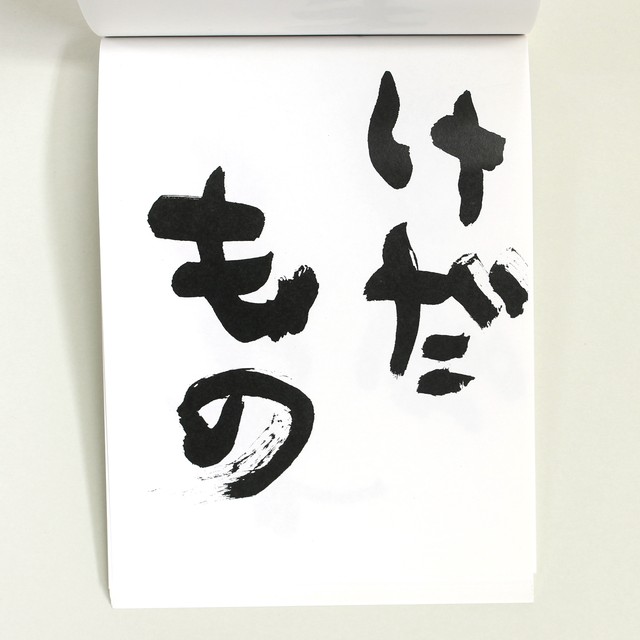 けだ
もの